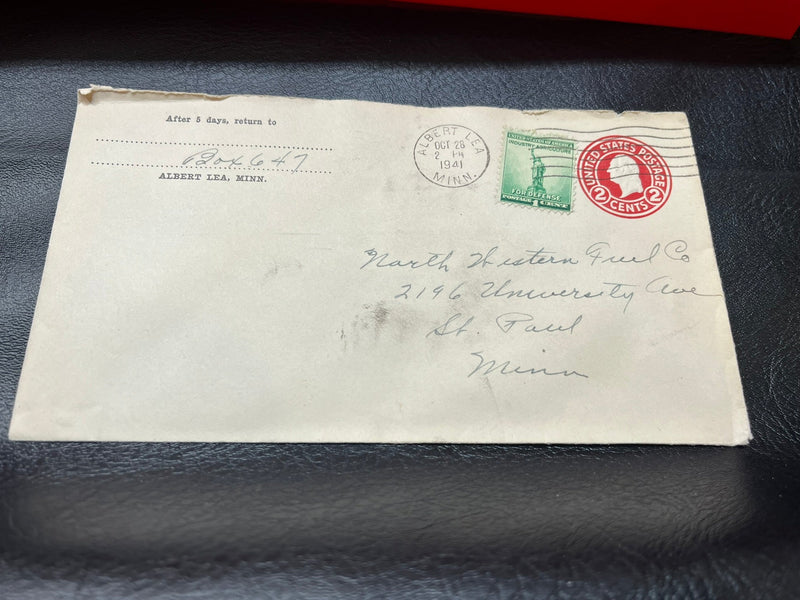 After 5 days, return to
Box 647
ALBERT LEA, MINN.
ALBERT LEA
OCT 28
2 PM
1941
MINN.
UNITED STATES OF AMERICA
INDUSTRY AGRICULTURE
FOR DEFENSE
POSTAGE 1 CENT
UNITED STATES POSTAGE
2 CENTS 2
North Western Fuel Co
2196 University Ave
St. Paul
Minn